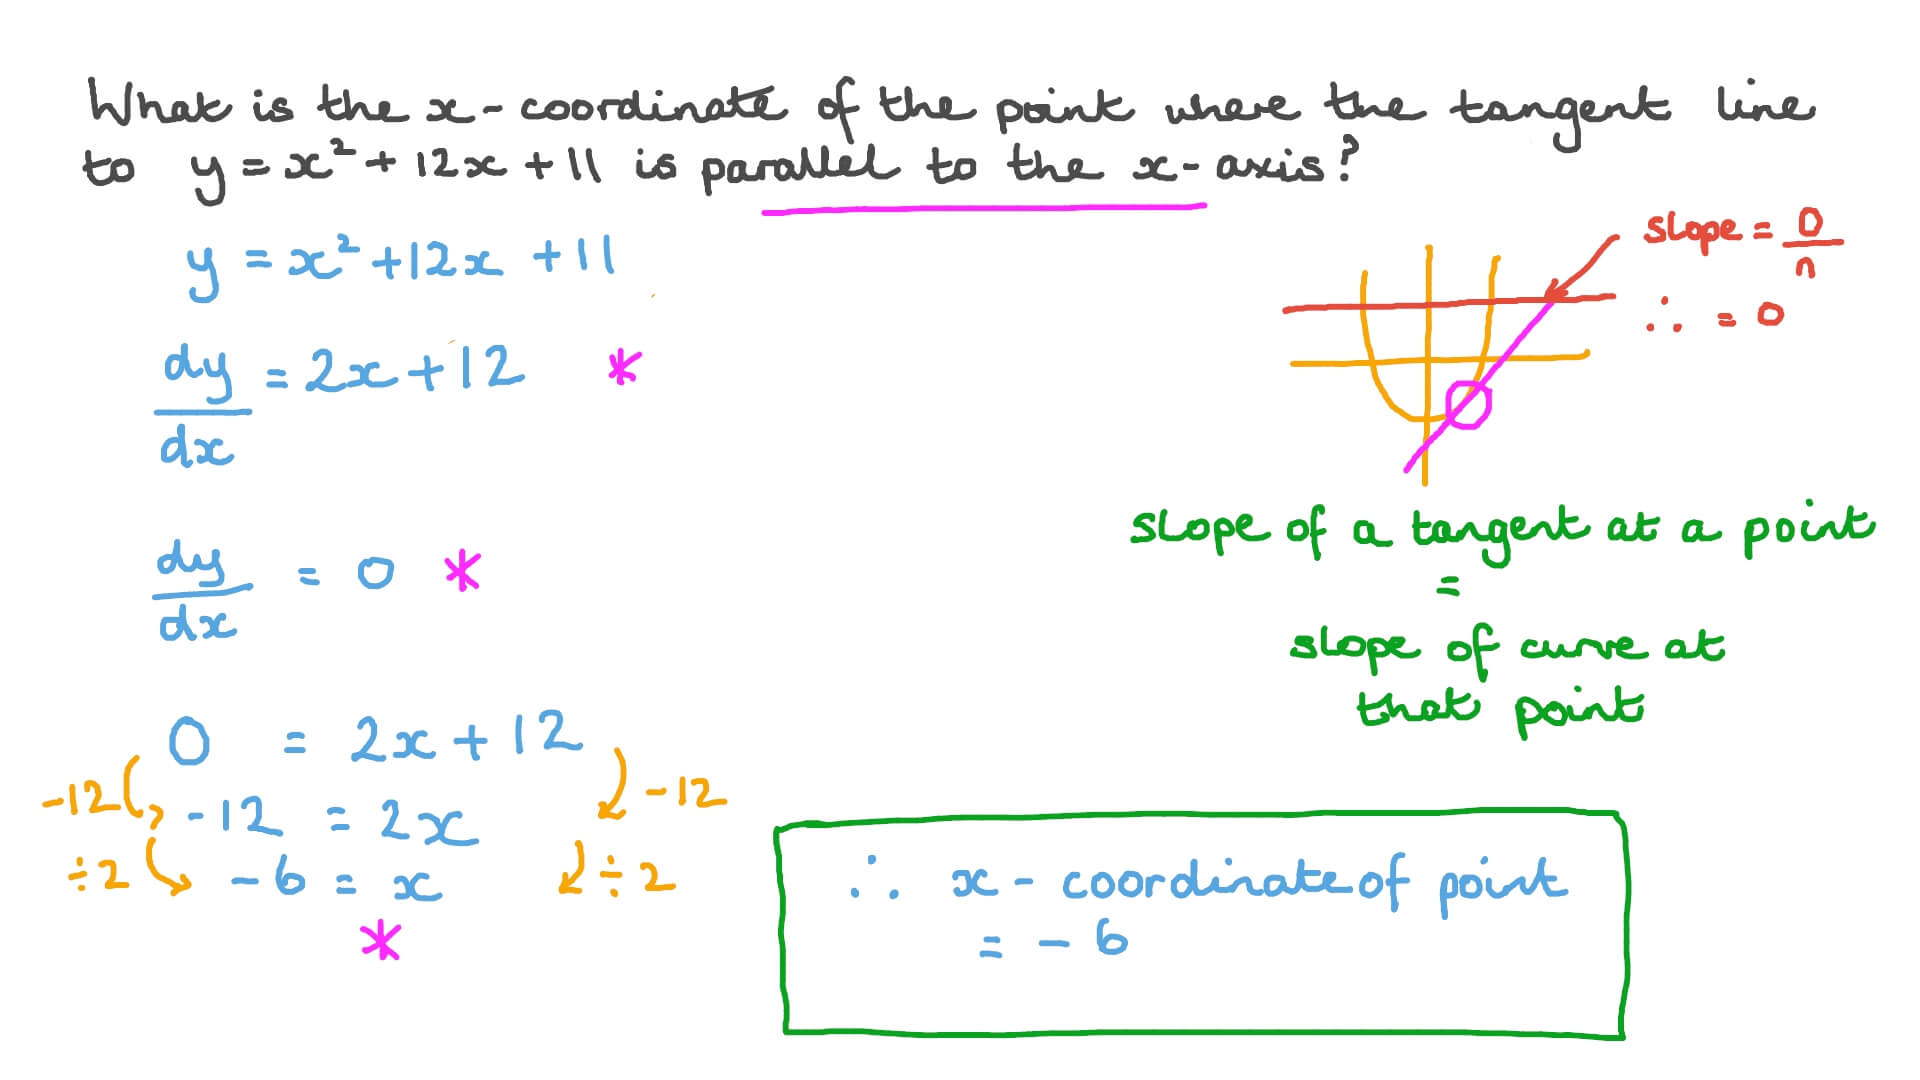 What is the x-coordinate of the point where the tangent line
to y = x² + 12x + 11 is parallel to the x-axis?
y = x² + 12x + 11
dy/dx = 2x + 12 *
dy/dx = 0 *
0 = 2x + 12
-12 -12
-12 = 2x
÷2 ÷2
-6 = x
*
slope = 0/n
∴ = 0
slope of a tangent at a point
=
slope of curve at
that point
∴ x - coordinate of point
= - 6